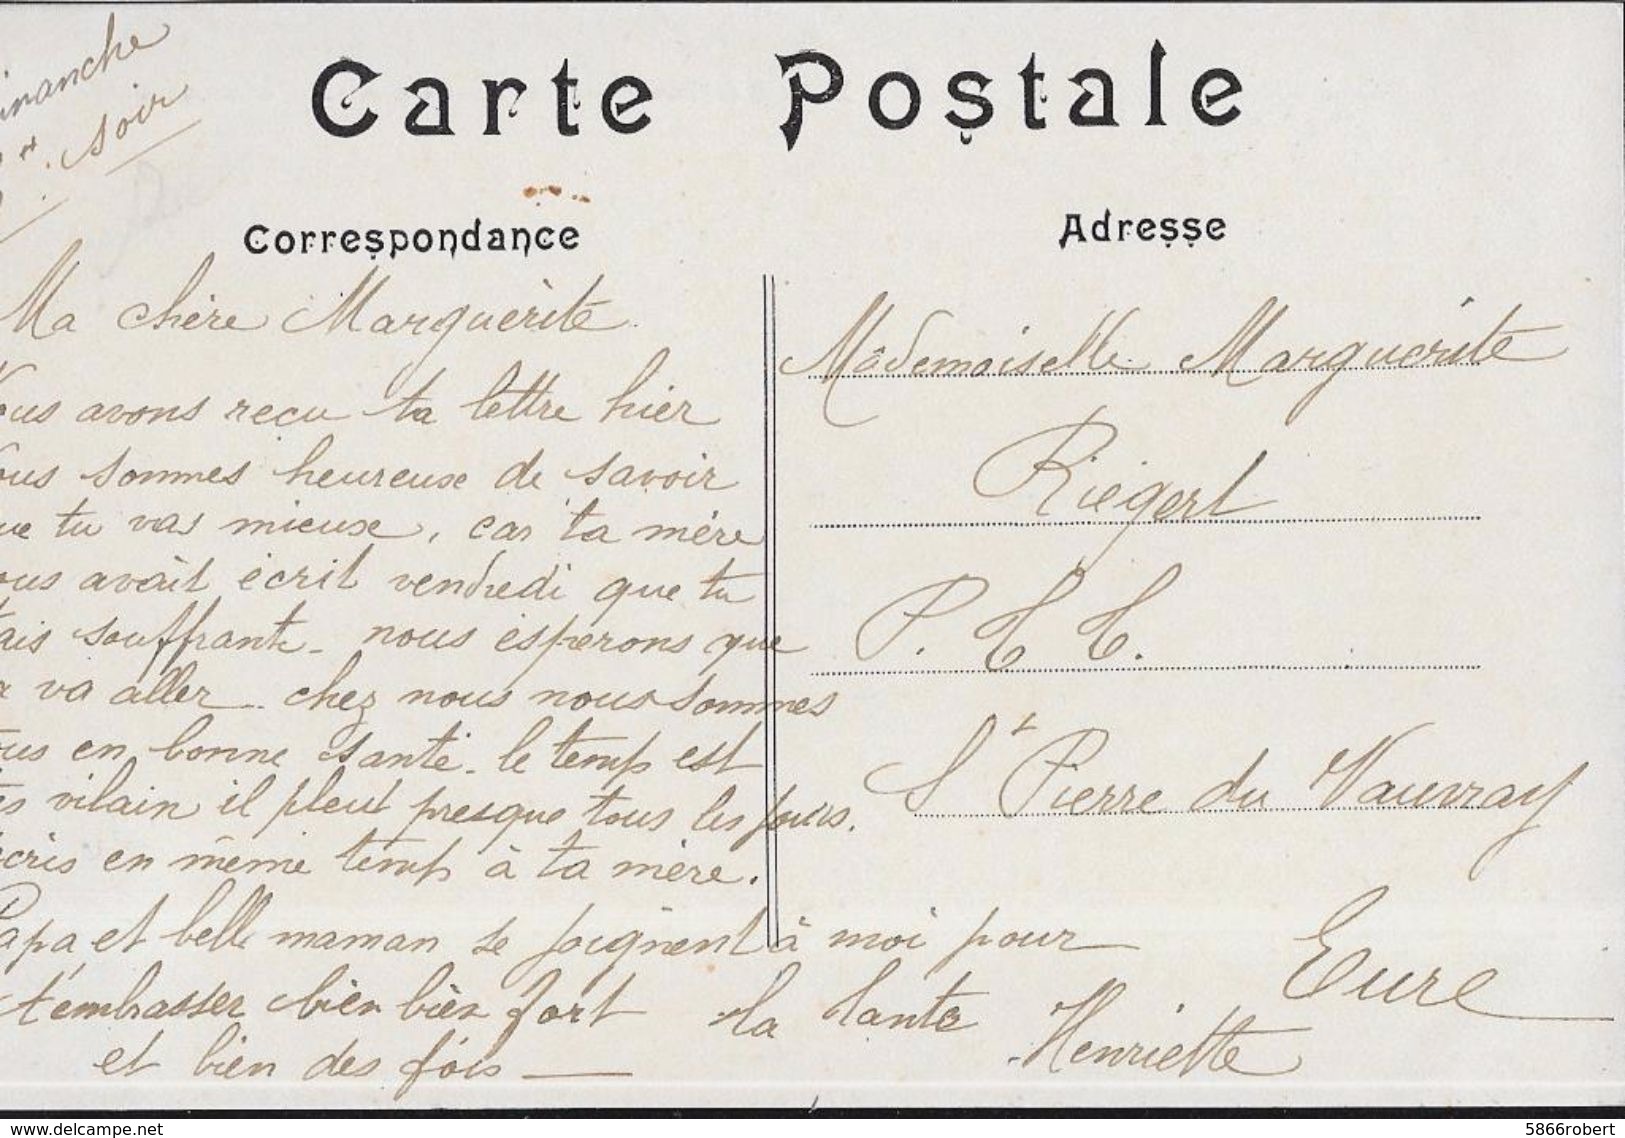 imanche
soir
Carte Postale
Correspondance
Adresse
Ma chère Marguèrite
ous avons recu ta lettre hier
ous sommes heureuse de savoir
ue tu vas mieuse, car ta mère
ous avait écrit vendredi que tu
tais souffrante - nous espérons que
va aller - chez nous nous sommes
ous en bonne santé - le temps est
ès vilain il pleut presque tous les jours.
écris en même temps à ta mère.
Papa et belle maman se joignent à moi pour
t'embasser bien bien fort
et bien des fois
ta tante
Henriette
Mademoiselle Marguerite
Riegert
P. T. T.
St Pierre du Vauvray
Eure
www.delcampe.net
5866robert